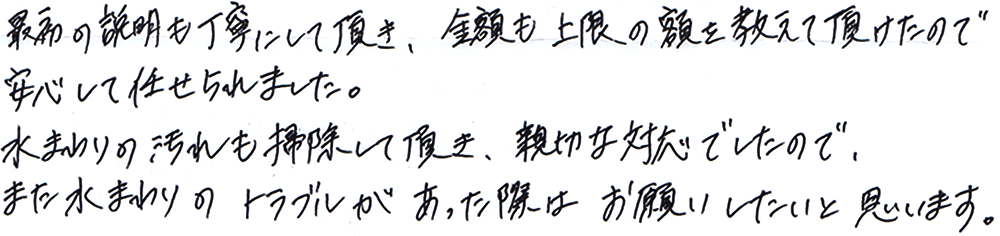 最初の説明も丁寧にして頂き、金額も上限の額を教えて頂けたので
安心して任せられました。
水まわりの汚れも掃除して頂き、親切な対応でしたので、
また水まわりのトラブルがあった際はお願いしたいと思います。